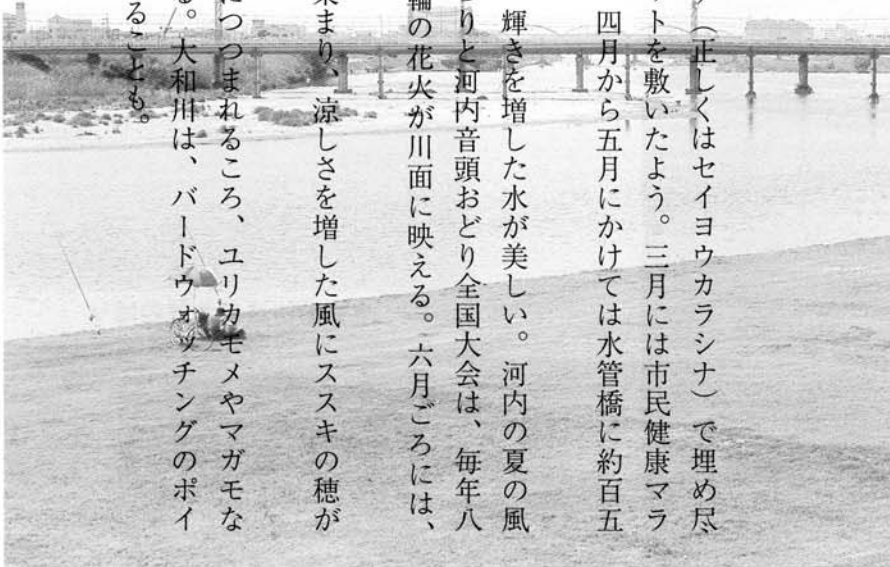 （正しくはセイヨウカラシナ）で埋め尽
トを敷いたよう。三月には市民健康マラ
四月から五月にかけては水管橋に約百五
輝きを増した水が美しい。河内の夏の風
りと河内音頭おどり全国大会は、毎年八
輪の花火が川面に映える。六月ごろには、
染まり、涼しさを増した風にススキの穂が
につつまれるころ、ユリカモメやマガモな
る。大和川は、バードウォッチングのポイ
ることも。